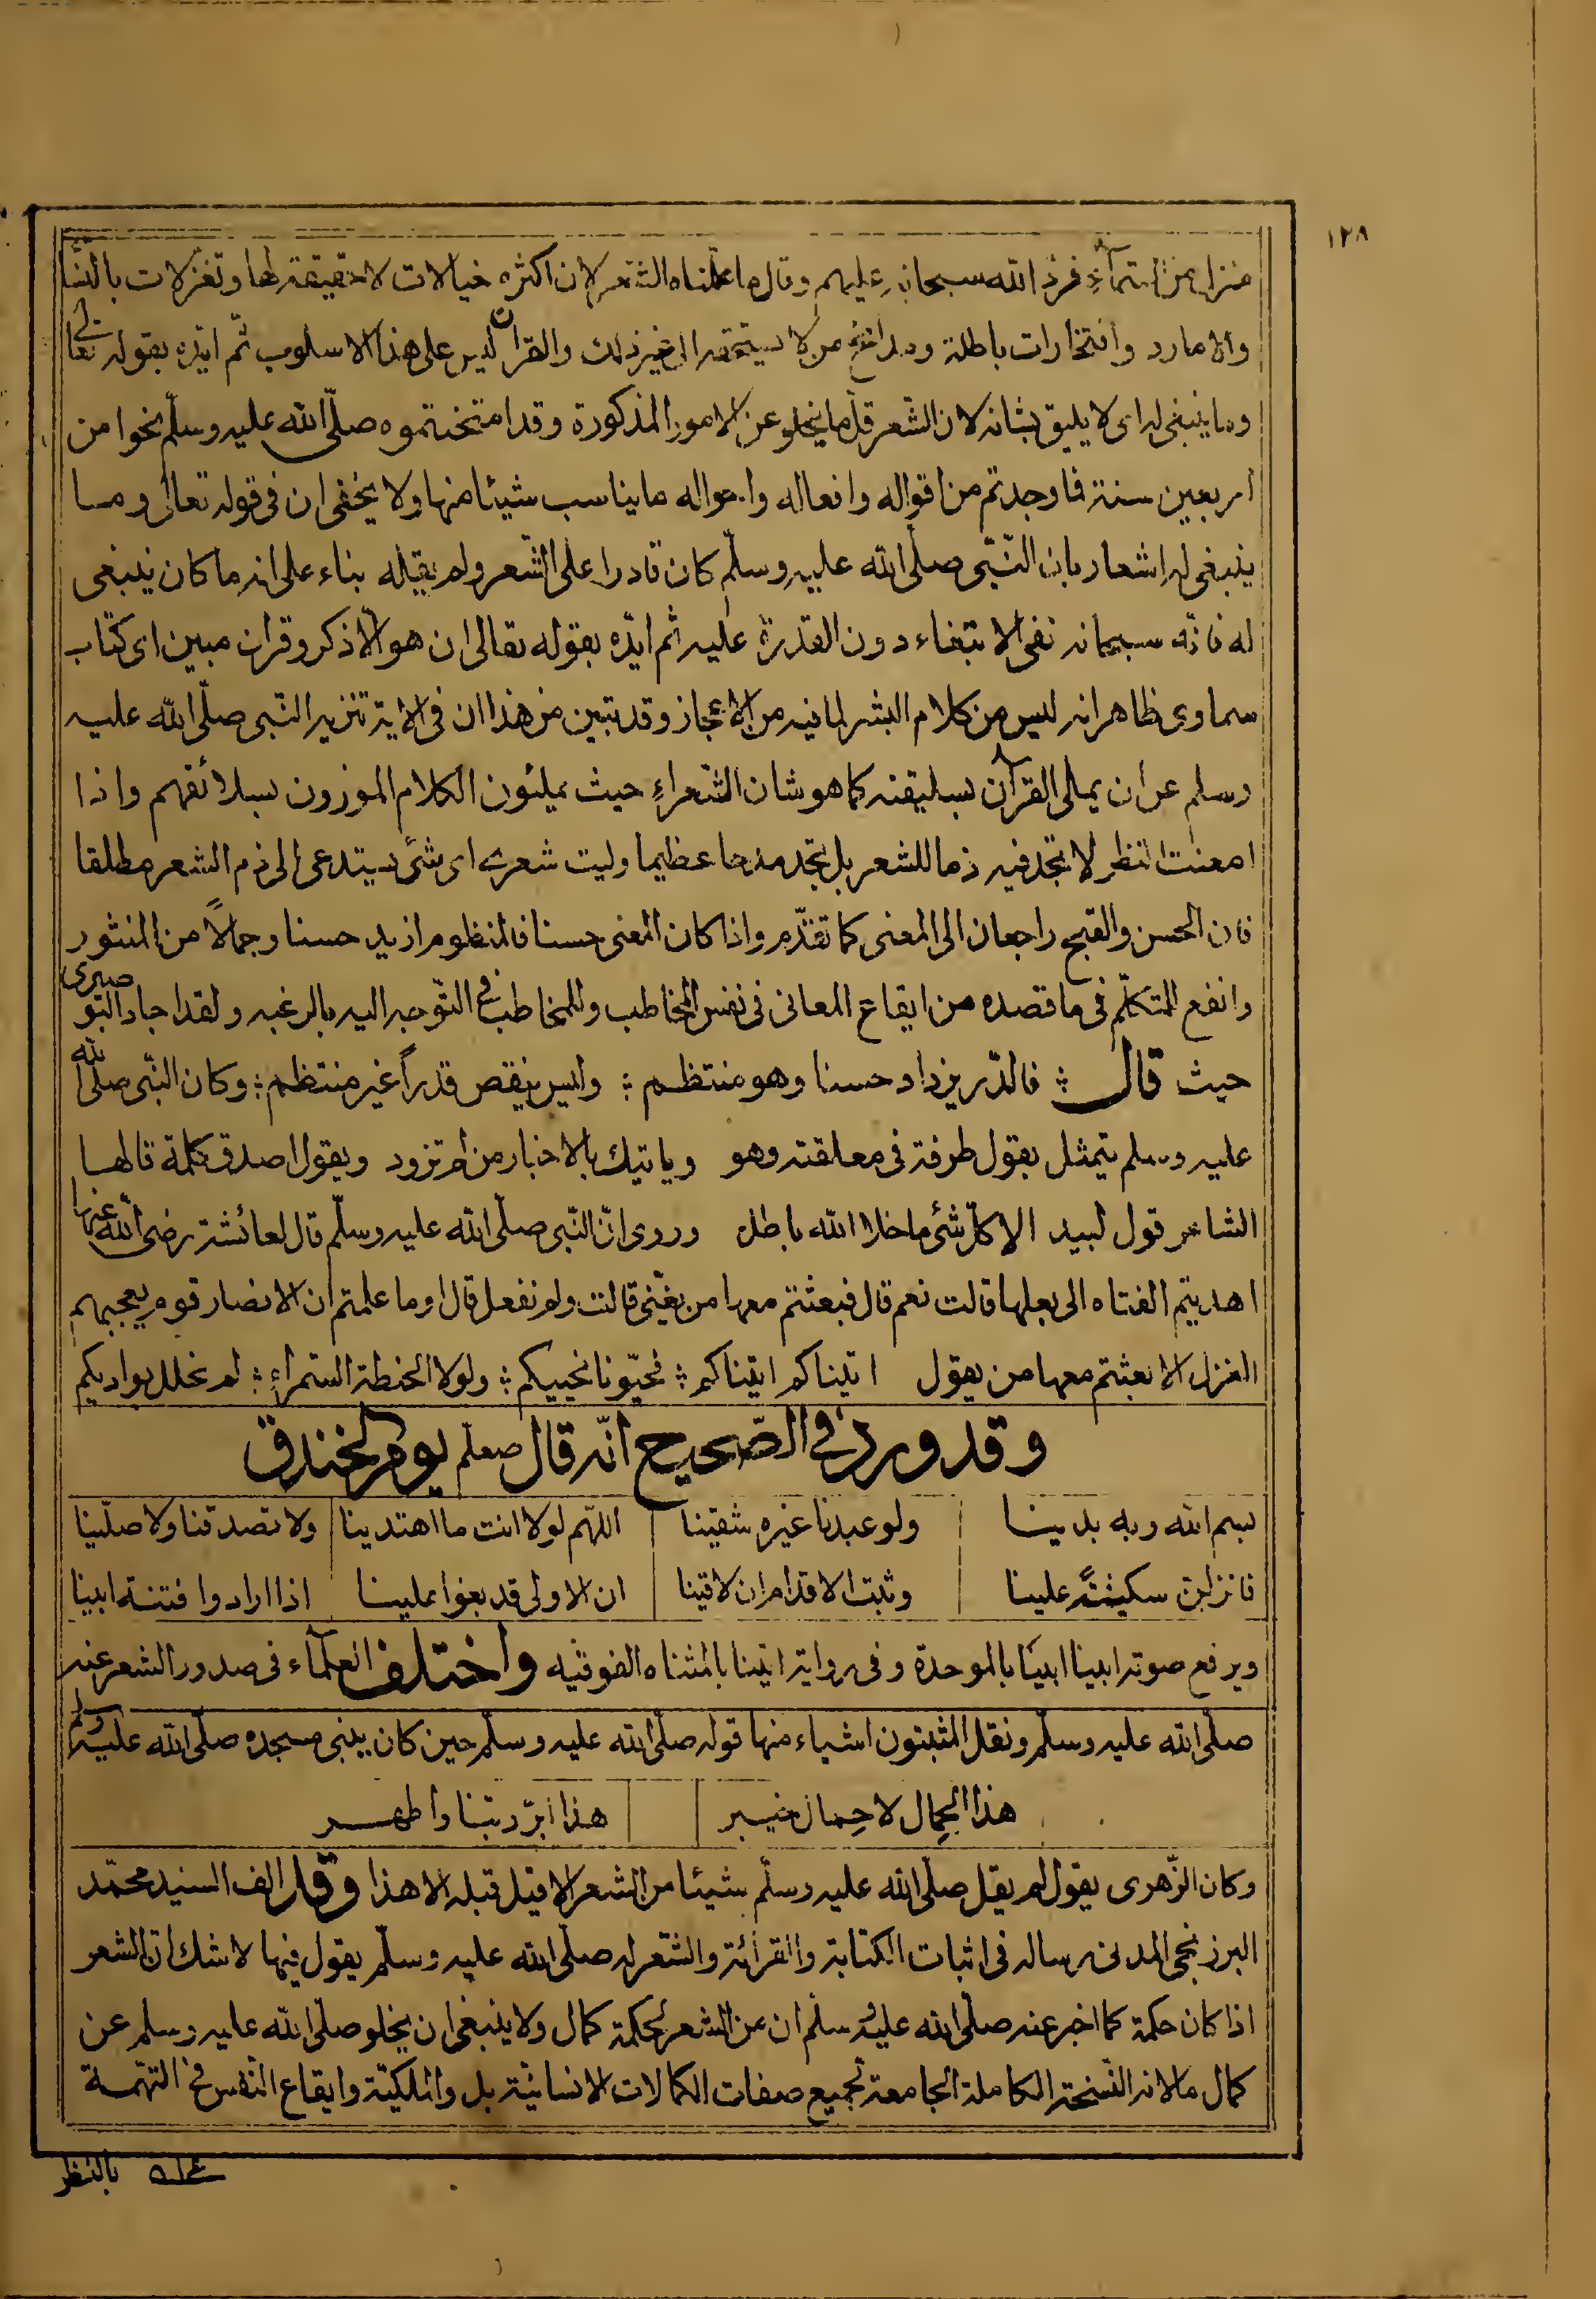 ١٢٨
منزل من السمآء فرد الله سبحانه عليهم وقال وما علمناه الشعر لان اكثره خيالات لا حقيقة لها وتغزلات بالنسا
والامارد وافتخارات باطلة ومدائح من لا يستحقه الى غير ذلك والقرآن ليس على هذا الاسلوب ثم ايده بقوله تعالى
وما ينبغى له اى لا يليق بشانه لان الشعر قل ما يخلو عن الامور المذكورة وقد امتخنتموه صلى الله عليه وسلم نحوا من
اربعين سنة فما وجدتم من اقواله وافعاله واحواله ما يناسب شيئا منها ولا يخفى ان فى قوله تعالى وما
ينبغى له اشعار بان النبى صلى الله عليه وسلم كان قادرا على الشعر ولم يقله بناء على انه ما كان ينبغى
له فانه سبحانه نفى الابتغاء دون القدرة عليه ثم ايده بقوله تعالى ان هو الا ذكر وقران مبين اى كتاب
سماوى ظاهر انه ليس من كلام البشر لما فيه من الاعجاز وقد تبين من هذا ان فى الاية تنزيه النبى صلى الله عليه
وسلم عن ان يملى القرآن بسليقته كما هو شان الشعراء حيث يملئون الكلام الموزون بسلائقهم واذا
امعنت النظر لا تجد فيه ذما للشعر بل تجد مدحا عظيما وليت شعرى اى شئ يستدعى الى ذم الشعر مطلقا
فان الحسن والقبح راجعان الى المعنى كما تقدم واذا كان المعنى حسنا فالمنظوم ازيد حسنا وجمالا من المنثور
وانفع للمتكلم فى ما قصده من ايقاع المعانى فى نفس المخاطب وللمخاطب فى التوجه اليه بالرغبه ولقد اجاد البوصيرى
حيث قال ؛ فالدر يزداد حسنا وهو منتظم ؛ وليس ينقص قدرا غير منتظم ؛ وكان النبى صلى الله
عليه وسلم يتمثل بقول طرفة فى معلقته وهو وياتيك بالاخبار من لم تزود ويقول اصدق كلمة قالها
الشاعر قول لبيد الا كل شئ ما خلا الله باطل وروى ان النبى صلى الله عليه وسلم قال لعائشة رضى الله عنها
اهديتم الفتاه الى بعلها قالت نعم قال فبعثتم معها من يغنى قالت ولم نفعل قال اوما علمتم ان الانصار قوم يعجبهم
الغزل الا بعثتم معها من يقول اتيناكم اتيناكم ؛ فحيونا نحييكم ؛ ولولا الحنطة السمراء ؛ لم نحلل بواديكم
وقد ورد فى الصحيح انه قال صلعم يوم الخندق
بسم الله وبه بدينا ولو عبدنا غيره شقينا اللهم لولا انت ما اهتدينا ولا تصدقنا ولا صلينا
فانزلن سكينة علينا وثبت الاقدام ان لاقينا ان الاولى قد بغوا علينا اذا ارادوا فتنة ابينا
ويرفع صوته ابينا ابينا بالموحدة وفى رواية اتينا بالمثناه الفوقيه واختلف العلمآء فى صدور الشعر عنه
صلى الله عليه وسلم ونقل المثبتون اشياء منها قوله صلى الله عليه وسلم حين كان يبنى مسجده صلى الله عليه وسلم
هذا الجمال لا حمال خيبر هذا ابر ربنا واطهر
وكان الزهرى يقول لم يقل صلى الله عليه وسلم شيئا من الشعر الا قيل قبله الا هذا وقد الف السيد محمد
البرزنجى المدنى رساله فى اثبات الكتابة والقرائة والشعر له صلى الله عليه وسلم يقول فيها لا شك ان الشعر
اذا كان حكمة كما اخبر عنه صلى الله عليه وسلم ان من الشعر لحكمة كمال ولا ينبغى ان يخلو صلى الله عليه وسلم عن
كمال ما لانه النسخة الكاملة الجامعة لجميع صفات الكمالات الانسانية بل والملكية وايقاع النفس فى التهمة
بالنظر